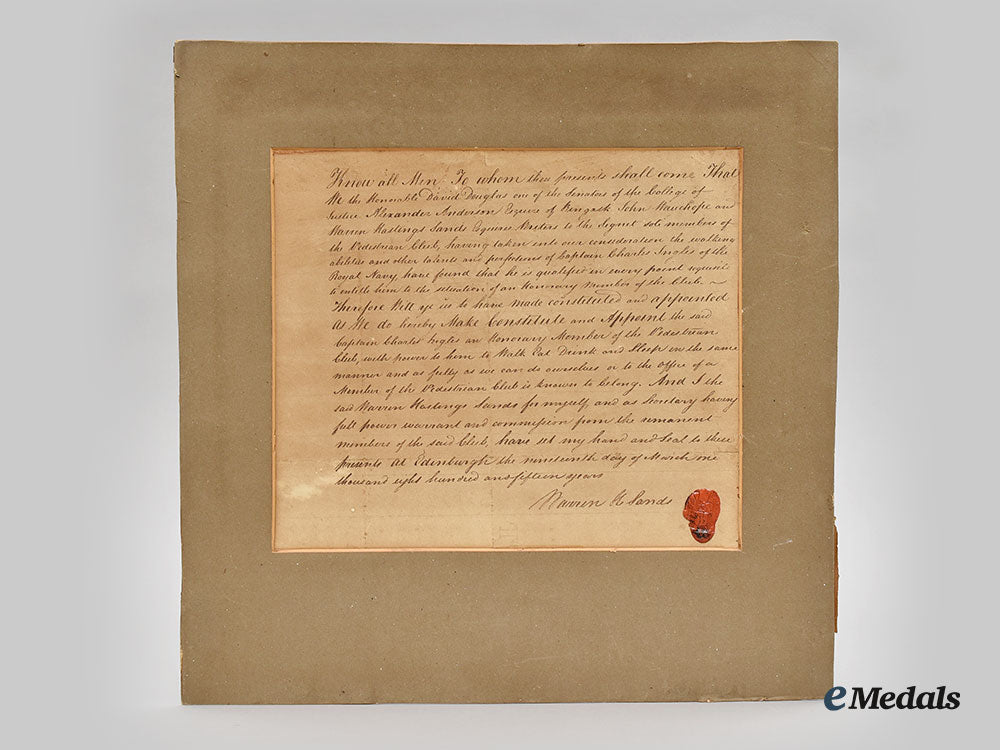 Know all Men To whom these presents shall come That
We the Honorable David Douglas one of the Senators of the College of
Justice Alexander Anderson Esquire of John Wauchope and
Warren Hastings Sands Esquires Writers to the Signet sole members of
the Pedestrian Club, having taken into our consideration the walking
abilities and other talents and of Captain Charles Ingles of the
Royal Navy, have found that he is qualified in every point requisite
to entitle him to the situation of an Honorary Member of the Club.
Therefore Witt ye us to have made constituted and appointed
As We do hereby Make Constitute and Appoint the said
Captain Charles Ingles an Honorary Member of the Pedestrian
Club, with power to him to Walk Eat Drink and Sleep in the same
manner and as fully as we can do ourselves or to the office of a
Member of the Pedestrian Club is known to belong. And I the
said Warren Hastings Sands for myself, and as Secretary having
full power warrant and commission from the remanent
members of the said Club, have set my hand and Seal to these
presents At Edinburgh the nineteenth day of March one
thousand eight hundred and fifteen years
Warren H Sands
eMedals